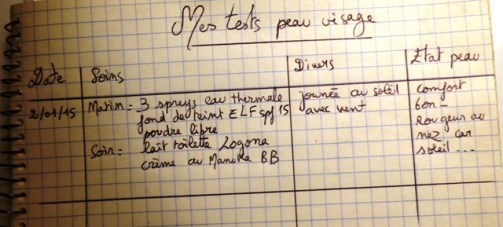 Mes tests peau visage
Date
Soins
Divers
Etat peau
2/01/15
Matin = 3 sprays eau thermale
fond de teint ELF spf 15
poudre libre
Soir = lait toilette Logona
crème au Manuka BB
journée au soleil
avec vent
comfort
bon -
Rougeur au
nez car
soleil ...